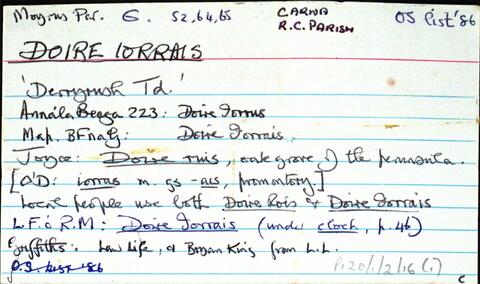 Moyrus Par. G. 52, 64, 65 CARNA R.C. PARISH OS List '86
DOIRE IORRAIS
'Derryrush Td.'
Annála Beaga 223: Doire Iorrus
Map. BFnaG: Doire Iorrais.
Joyce: Doire ruis, oak grove of the peninsula.
[O'D: iorras m. gs -ais, promontory.]
Local people use both Doire Rois & Doire Iorrais
L.F. ó R.M: Doire Iorrais (under cloch, p. 46)
Griffiths: Law Life, & Bryan King from L.L.
O.S. List '86
P120/1/2/16 (i)
C